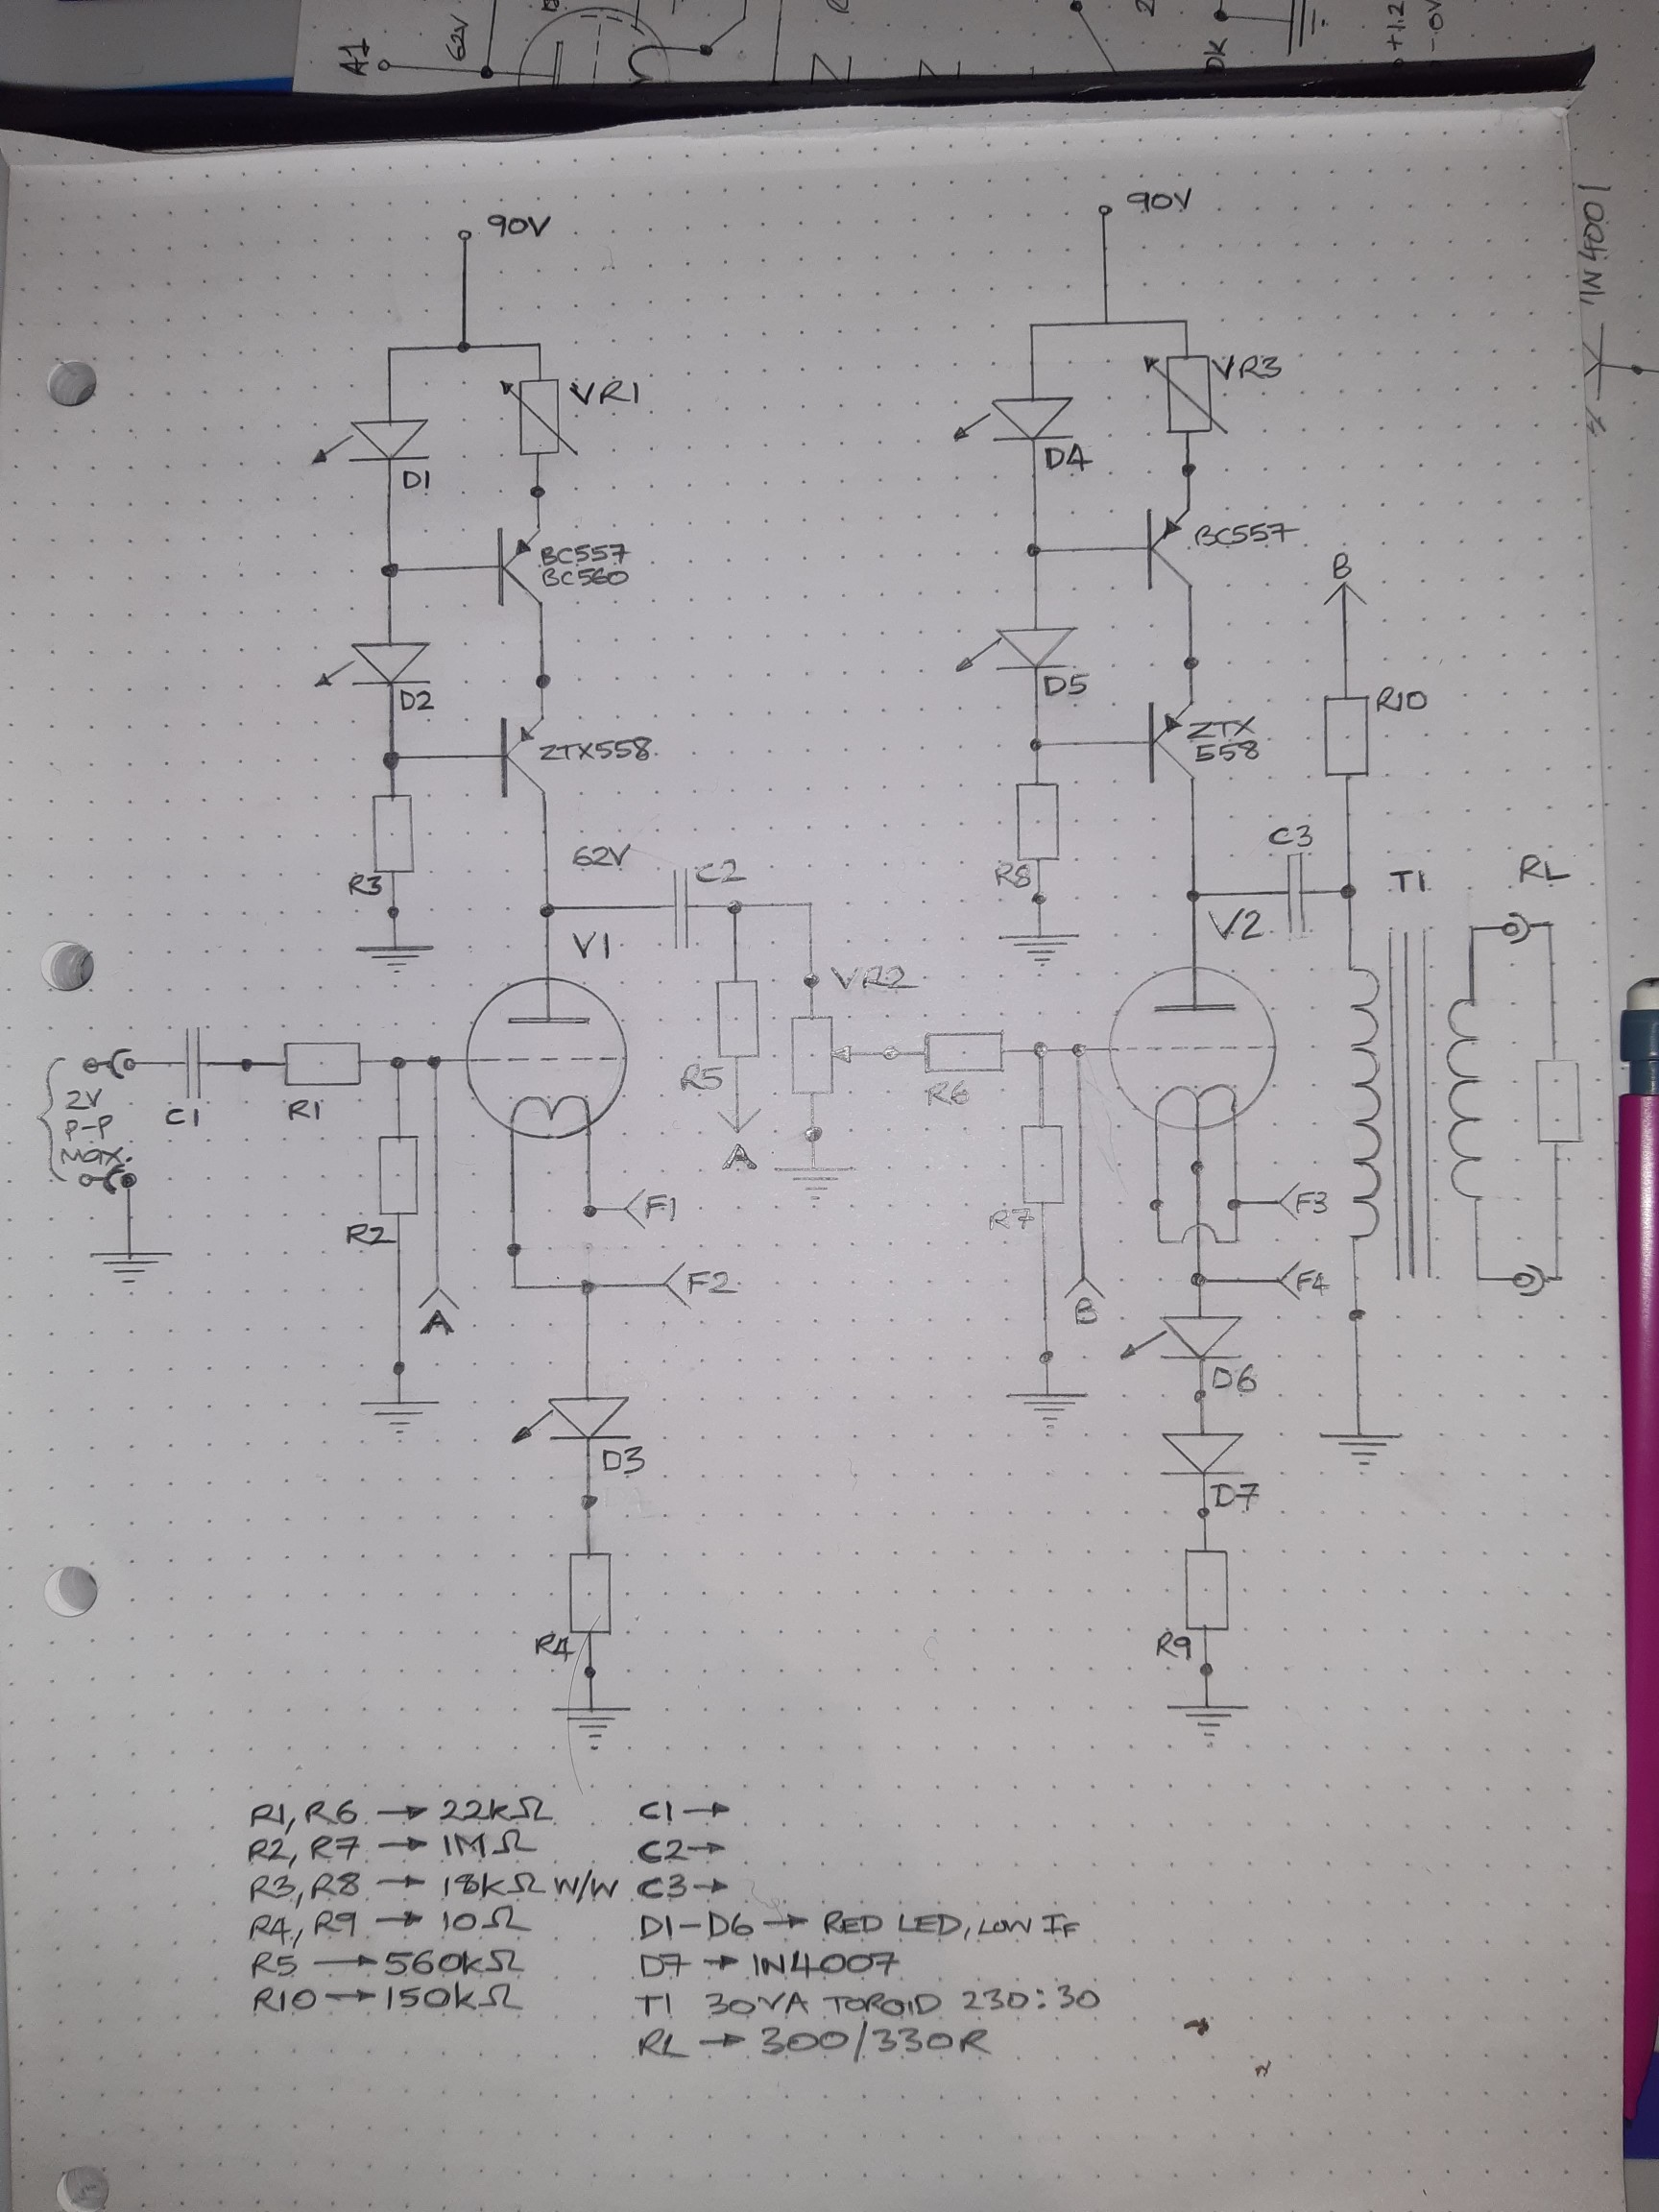 A1
62V
DK
+1.2
-0V
1N4001
90V
90V
VR1
VR3
D1
D4
BC557
BC560
BC557
B
D2
D5
R10
ZTX558
ZTX
558
62V
C2
C3
R3
R8
T1
RL
V1
V2
VR2
2V
P-P
MAX.
C1
R1
R5
A
R6
R2
F1
F2
A
R7
B
F3
F4
D6
D3
D7
R4
R9
R1, R6 → 22kΩ
R2, R7 → 1MΩ
R3, R8 → 18kΩ W/W
R4, R9 → 10Ω
R5 → 560kΩ
R10 → 150kΩ
C1 →
C2 →
C3 →
D1-D6 → RED LED, LOW IF
D7 → 1N4007
T1 30VA TOROID 230:30
RL → 300/330R